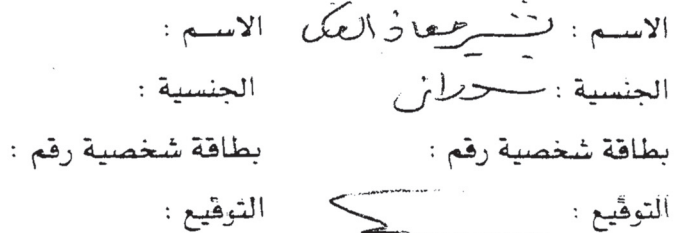 الاسم : معاذ الاسم :
الجنسية : سوداني الجنسية :
بطاقة شخصية رقم : بطاقة شخصية رقم :
التوقيع : التوقيع :